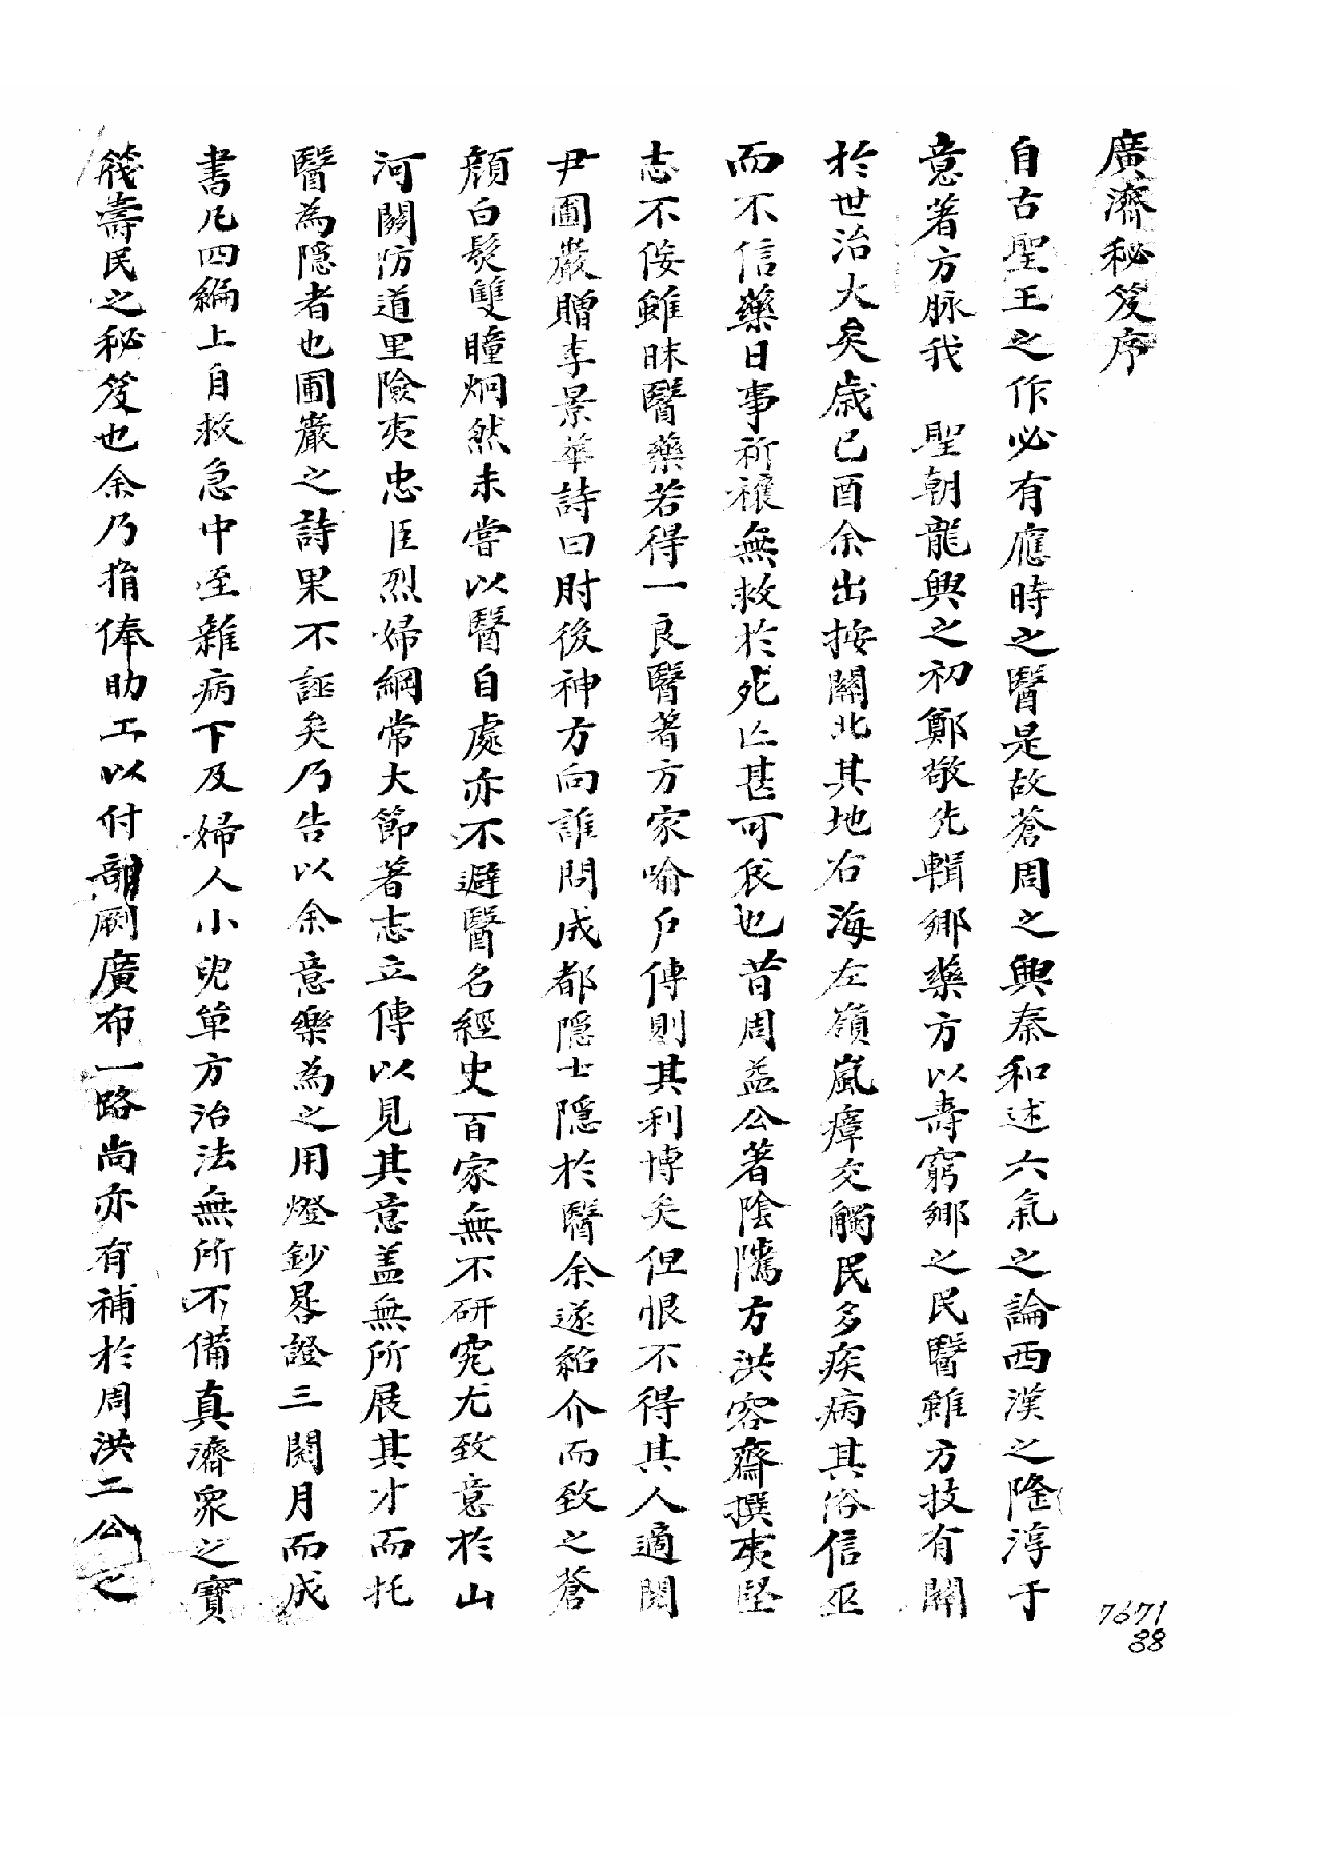 廣濟秘笈序
自古聖王之作必有應時之醫是故蒼周之興秦和述六氣之論西漢之隆淳于
意著方脉我　聖朝龍興之初鄭敬先輯鄉藥方以壽窮鄉之民醫雖方技有關
於世治大矣歲己酉余出按關北其地右海左嶺嵐瘴交觸民多疾病其俗信巫
而不信藥日事祈禳無救於死亡甚可哀也昔周益公著陰隲方洪容齋撰夷堅
志不佞雖昧醫藥若得一良醫著方家喻戶傳則其利博矣但恨不得其人適聞
尹圃巖贈李景華詩曰肘後神方向誰問成都隱士隱於醫余遂紹介而致之蒼
顔白髮雙瞳炯然未嘗以醫自處亦不避醫名經史百家無不研究尤致意於山
河關防道里險夷忠臣烈婦綱常大節著志立傳以見其意盖無所展其才而托
醫為隱者也圃巖之詩果不誣矣乃告以余意樂為之用燈鈔晷證三閱月而成
書凡四編上自救急中至雜病下及婦人小兒單方治法無所不備真濟衆之寶
筏壽民之秘笈也余乃捐俸助工以付剞劂廣布一路尚亦有補於周洪二公之
7671
88